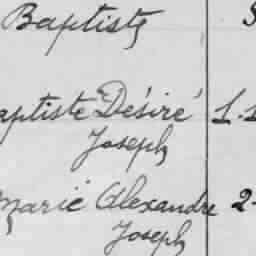 Baptiste
aptiste Désiré 1.1
Joseph
Marie Alexandre 2-
Joseph